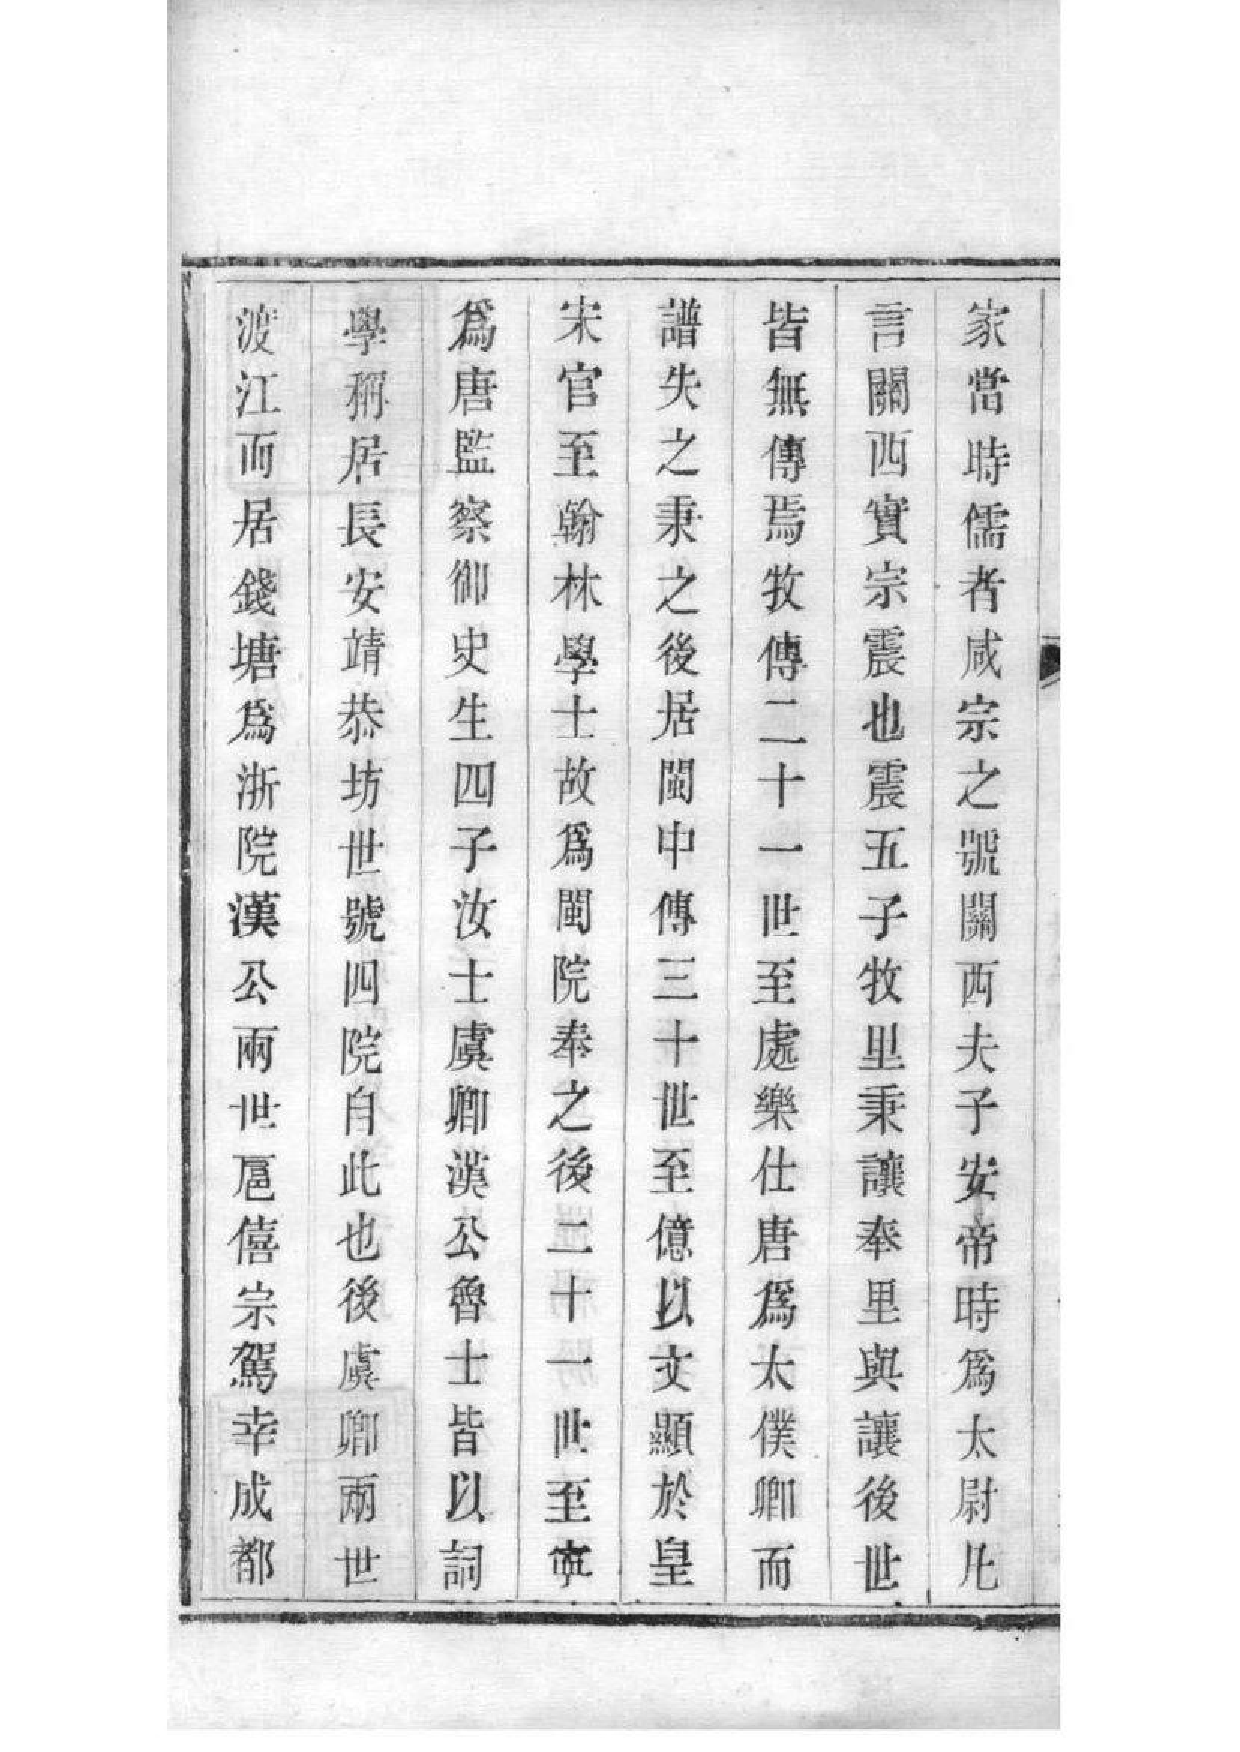 家當時儒者咸宗之號關西夫子安帝時爲太尉凡
言關西實宗震也震五子牧里秉讓奉里與讓後世
皆無傳焉牧傳二十一世至處樂仕唐爲太僕卿而
譜失之秉之後居閩中傳三十世至億以文顯於皇
宋官至翰林學士故爲閩院奉之後二十一世至寧
爲唐監察御史生四子汝士虞卿漢公魯士皆以詞
學稱居長安靖恭坊世號四院自此也後虞卿兩世
渡江而居錢塘爲浙院漢公兩世扈僖宗駕幸成都